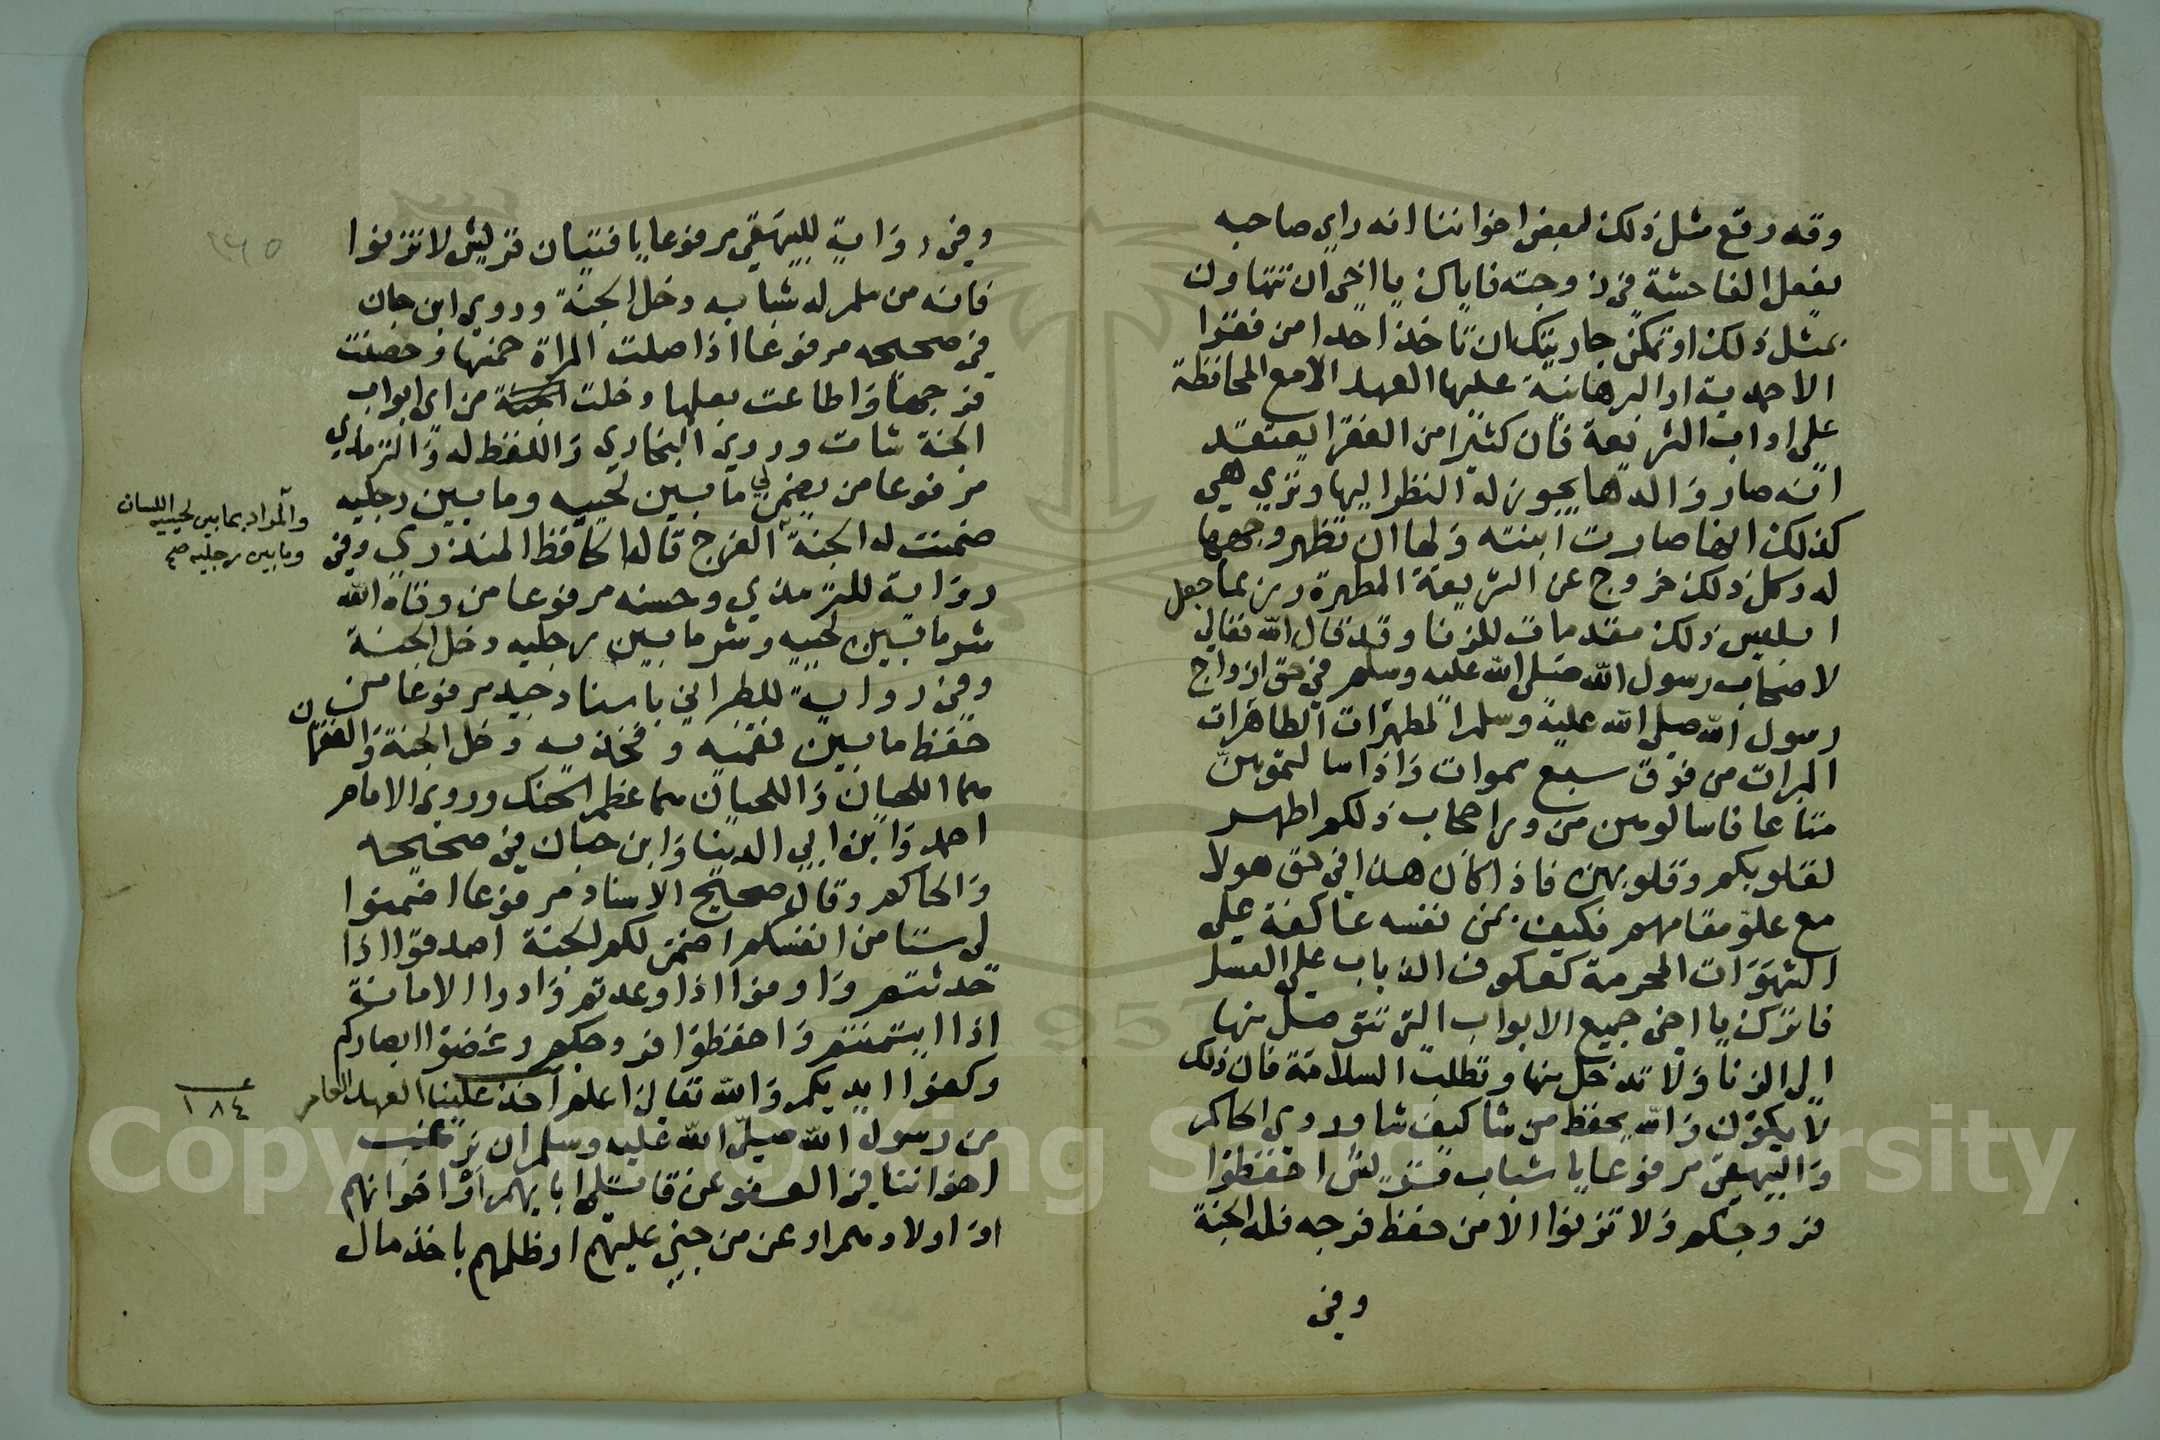 وقد وقع مثل ذلك لبعض اخواننا انه راي صاحبه
يفعل الفاحشة في زوجته فاياك يا اخي ان تتهاون
بمثل ذلك او تمكن جاريتك ان تاخذ احدا من فقرا
الاحمدية او البرهانية عليها العهد الا مع المحافظة
على اداب الشريعة فان كثيرا من الفقرا يعتقد
انه صار والدها يجوز له النظر اليها وتري هي
كذلك انها صارت ابنته ولها ان تظهر وجهها
له وكل ذلك خروج عن الشريعة المطهرة وربما جعل
ابليس ذلك مقدمات للزنا وقد قال الله تعالي
لاصحاب رسول الله صلى الله عليه وسلم في حق ازواج
رسول الله صلى الله عليه وسلم المطهرات الطاهرات
المبرات من فوق سبع سموات واذا سالتموهن
متاعا فاسالوهن من ورا حجاب ذلكم اطهر
لقلوبكم وقلوبهن فاذا كان هذا في حق هولا
مع علو مقامهم فكيف بمن نفسه عاكفة على
الشهوات المحرمة كعكوف الذباب على العسل
فاترك يا اخي جميع الابواب التي تتوصل منها
الى الزنا ولا تدخل منها وتطلب السلامة فان ذلك
لا يكون والله يحفظ من شا كيف شا وروي الحاكم
والبيهقي مرفوعا يا شباب قريش احفظوا
فروجكم ولا تزنوا الا من حفظ فرجه فله الجنة
وفي
٢٦٥
وفي رواية للبيهقي مرفوعا يا فتيان قريش لا تزنوا
فانه من سلم له شبابه دخل الجنة وروي ابن حبان
في صحيحه مرفوعا اذا صلت المراة خمسها وحصنت
فرجها واطاعت بعلها دخلت الجنة من اي ابواب
الجنة شات وروي البخاري واللفظ له والترمذي
مرفوعا من يضمن لي ما بين لحييه وما بين رجليه
ضمنت له الجنة الفرج قاله الحافظ المنذري وفي
والمراد بما بين لحييه اللسان
وما بين رجليه صح
رواية للترمذي وحسنه مرفوعا من وقاه الله
شر ما بين لحييه وشر ما بين رجليه دخل الجنة
وفي رواية للطبراني باسناد جيد مرفوعا من
حفظ ما بين فقميه وفخذيه دخل الجنة والفقمان
هما اللحيان واللحيان هما عظم الحنك وروي الامام
احمد وابن ابي الدنيا وابن حبان في صحيحه
والحاكم وقال صحيح الاسناد مرفوعا اضمنوا
لي ستا من انفسكم اضمن لكم الجنة اصدقوا اذا
حدثتم واوفوا اذا وعدتم وادوا الامانة
اذا ايتمنتم واحفظوا فروجكم وغضوا ابصاركم
وكفوا ايديكم والله تعالى اعلم اخذ علينا العهد العام
١٨٤
من رسول الله صلى الله عليه وسلم ان نرغب
اخواننا في العفو عن قاتل ابايهم او اخوانهم
او اولادهم او عن من جني عليهم او ظلمهم باخذ مال
1957
Copyright © King Saud University